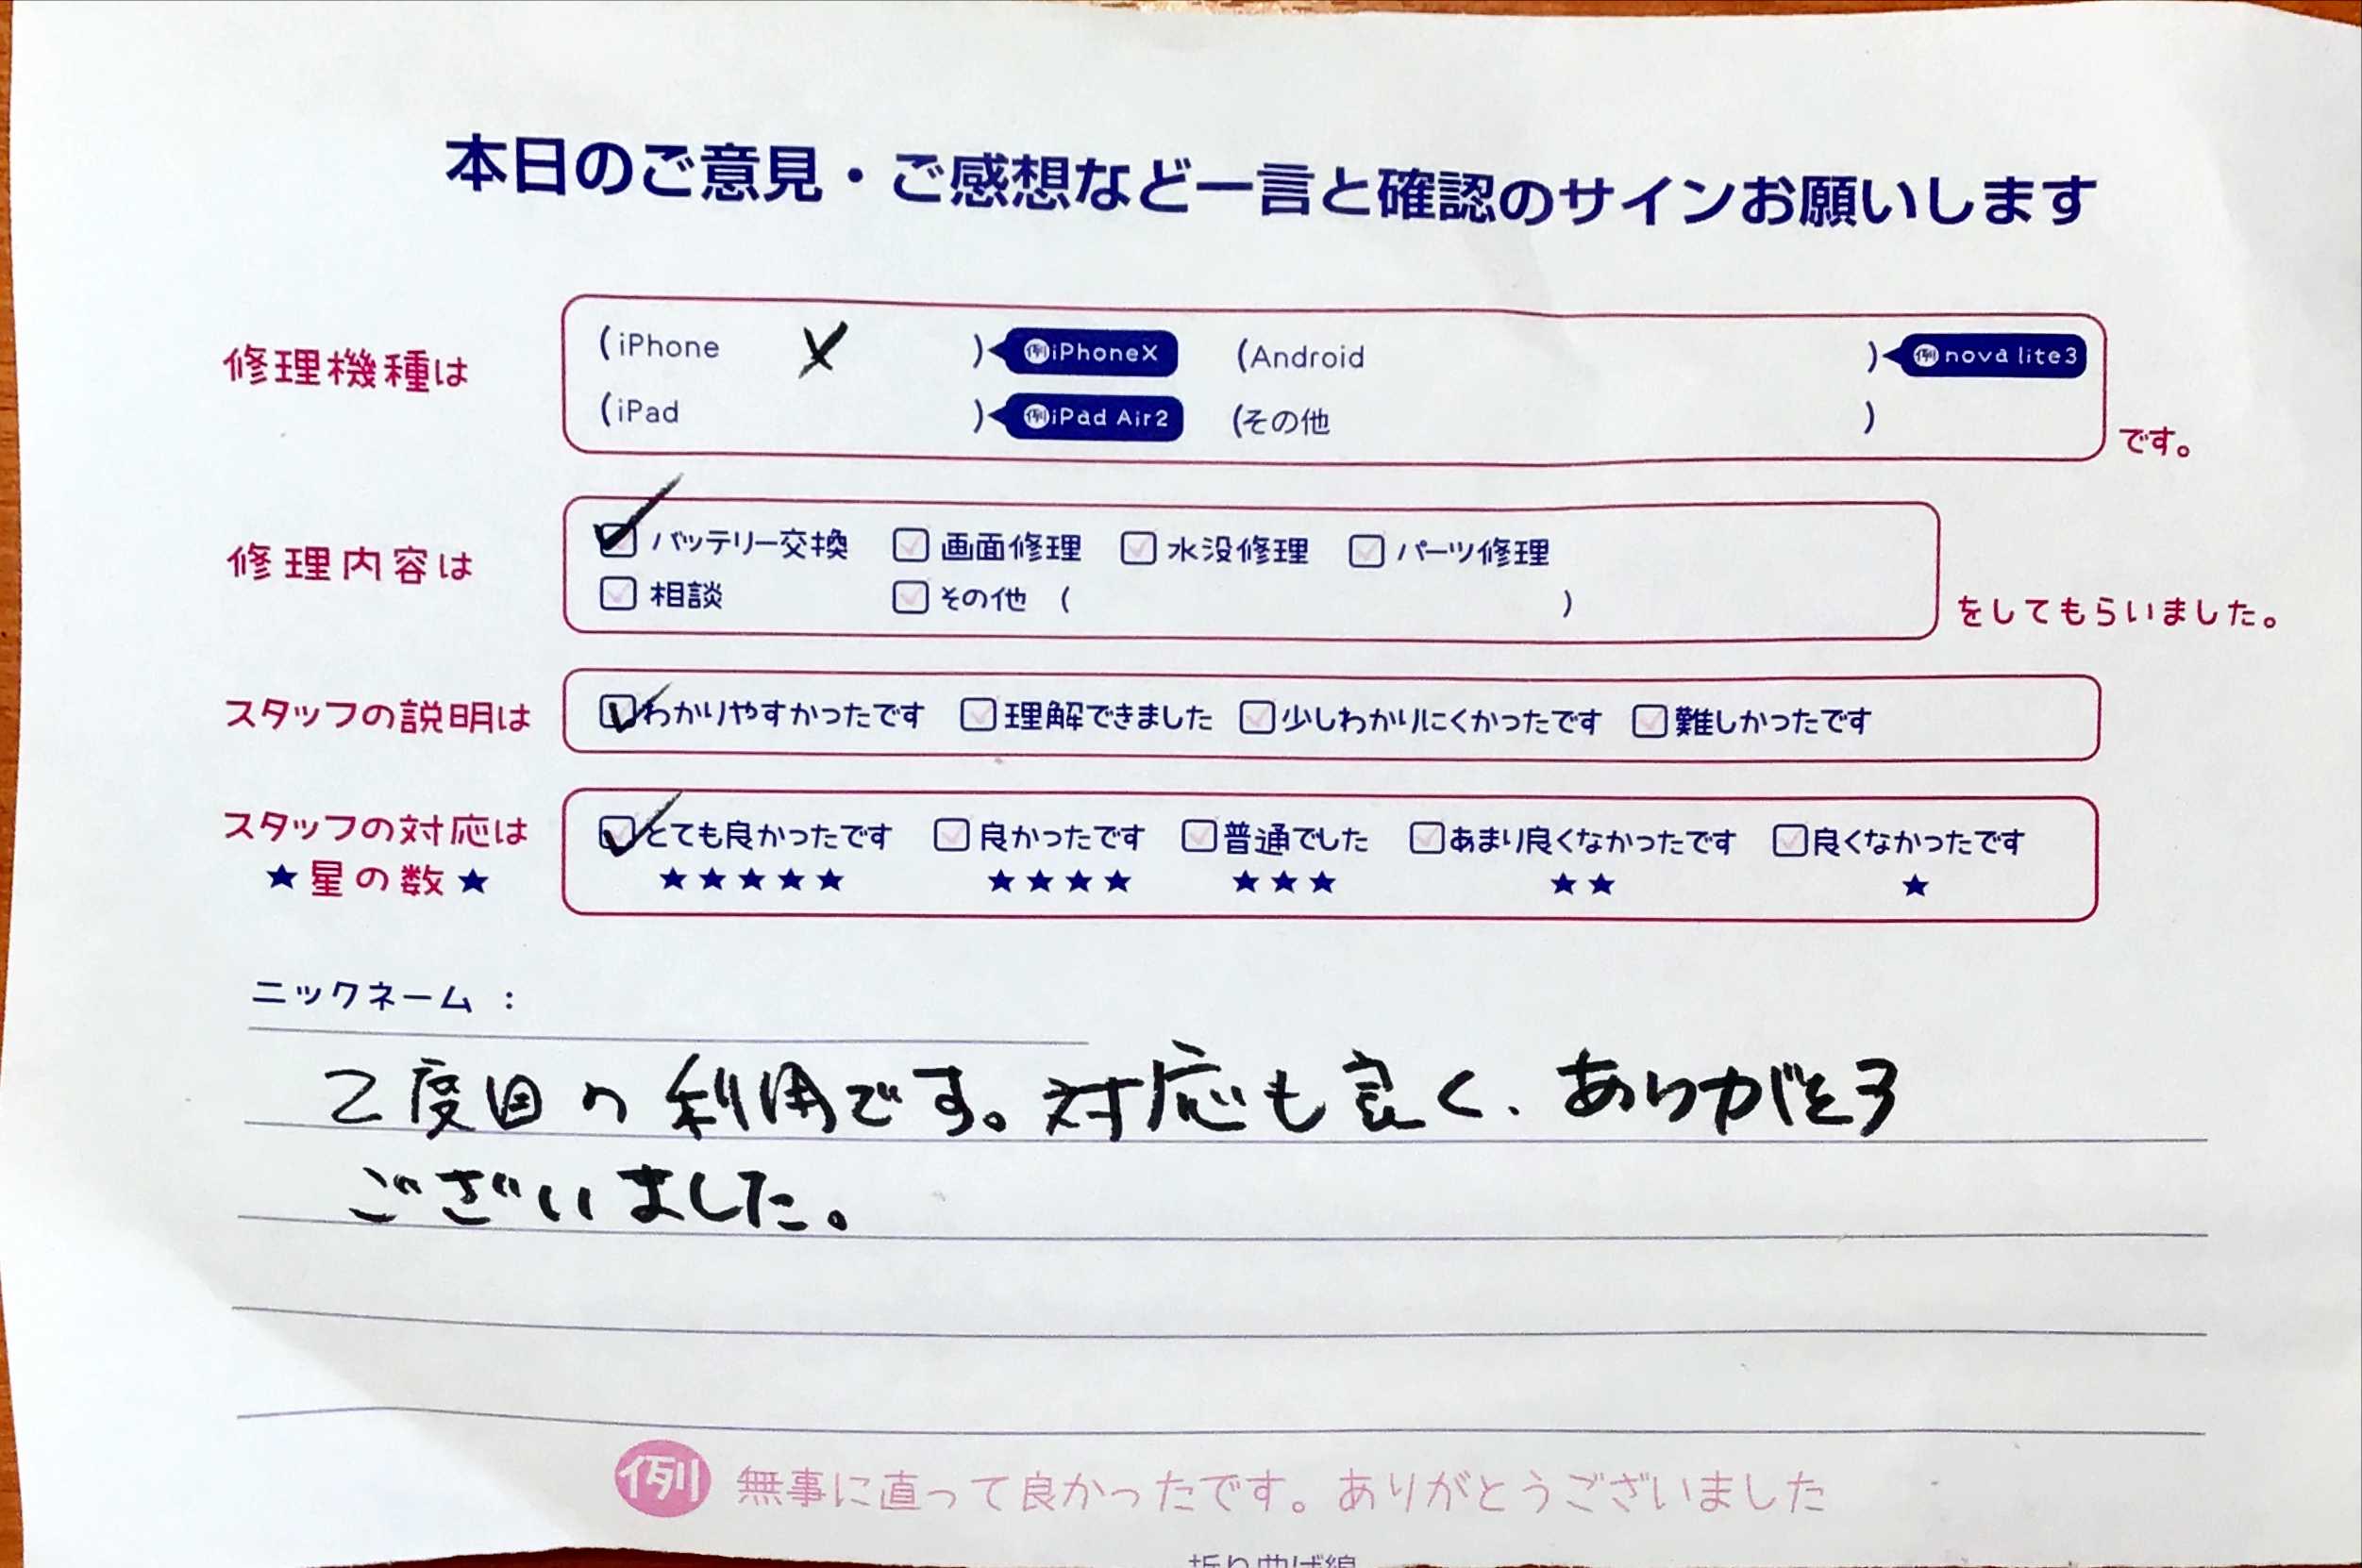 本日のご意見・ご感想など一言と確認のサインお願いします
修理機種は (iPhone X ) 例iPhoneX (Android ) 例nova lite3
(iPad ) 例iPad Air2 (その他 ) です。
修理内容は ☑バッテリー交換 □画面修理 □水没修理 □パーツ修理
□相談 □その他 ( ) をしてもらいました。
スタッフの説明は ☑わかりやすかったです □理解できました □少しわかりにくかったです □難しかったです
スタッフの対応は ☑とても良かったです □良かったです □普通でした □あまり良くなかったです □良くなかったです
★星の数★ ★★★★★ ★★★★ ★★★ ★★ ★
ニックネーム：
2度目の利用です。対応も良く、ありがとう
ございました。
例 無事に直って良かったです。ありがとうございました
折り曲げ線